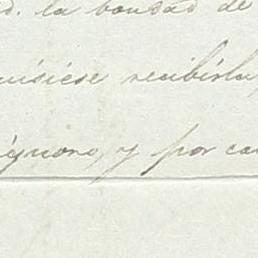 d. la bondad de
uisiése recibirla,
ignoro, y por ca